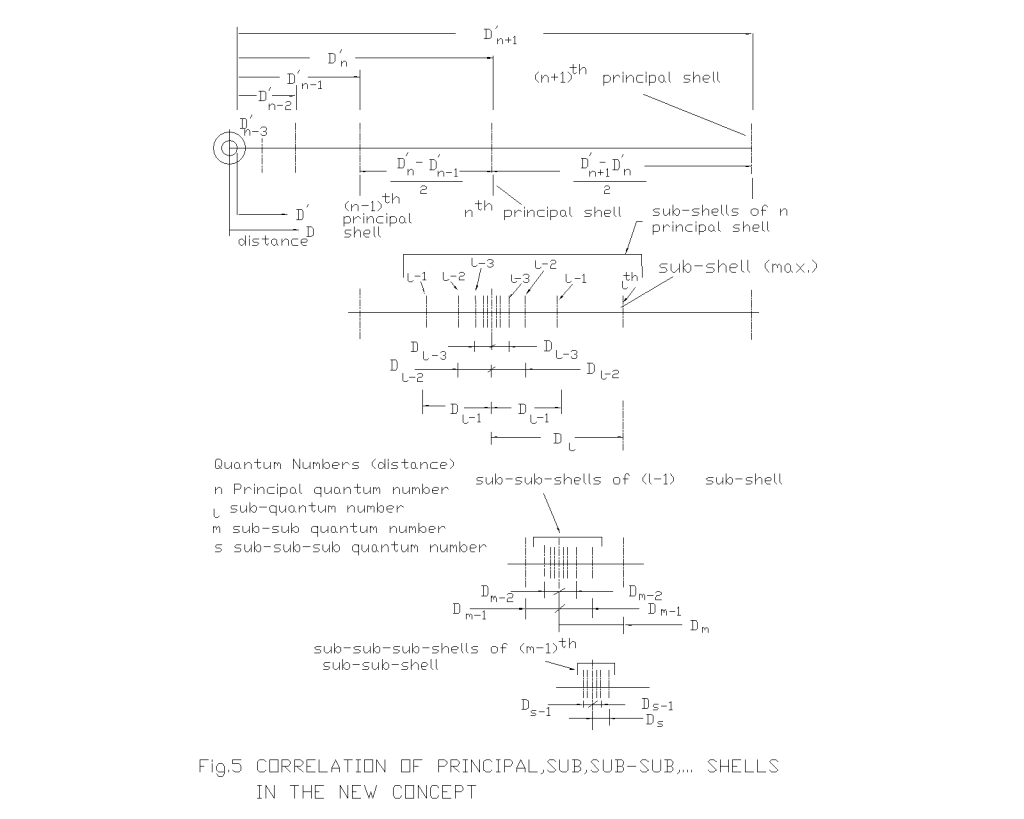 D′n+1
D′n
D′n-1
D′n-2
(n+1)th principal shell
D′n-3
D′n- D′n-1
2
D′n+1- D′n
2
(n-1)th
principal
shell
nth principal shell
D′
D
distance
sub-shells of n
principal shell
sub-shell (max.)
l-1 l-2 l-3 l-3 l-2 l-1 lth
Dl-3 Dl-3
Dl-2 Dl-2
Dl-1 Dl-1
Dl
Quantum Numbers (distance)
n Principal quantum number
l sub-quantum number
m sub-sub quantum number
s sub-sub-sub quantum number
sub-sub-shells of (l-1) sub-shell
Dm-2 Dm-2
Dm-1 Dm-1
Dm
sub-sub-sub-shells of (m-1)th
sub-sub-shell
Ds-1 Ds-1
Ds
Fig.5 CORRELATION OF PRINCIPAL,SUB,SUB-SUB,... SHELLS
IN THE NEW CONCEPT